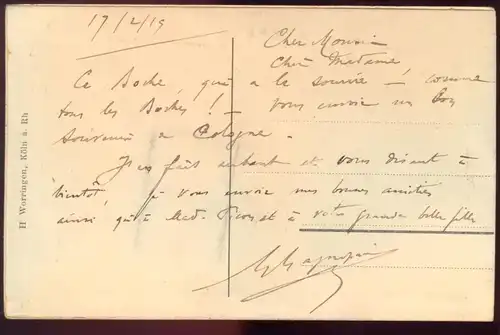 17/2/19
Cher Monsieur
Chère Madame,
Ce Boche, qui a le sourire — comme
tous les Boches ! — vous envoie un bon
souvenir de Cologne.
J'en fais autant et vous disant à
bientôt, je vous envoie mes bonnes amitiés
ainsi qu'à Mad. et à votre grande belle fille
H Worringen, Köln a. Rh